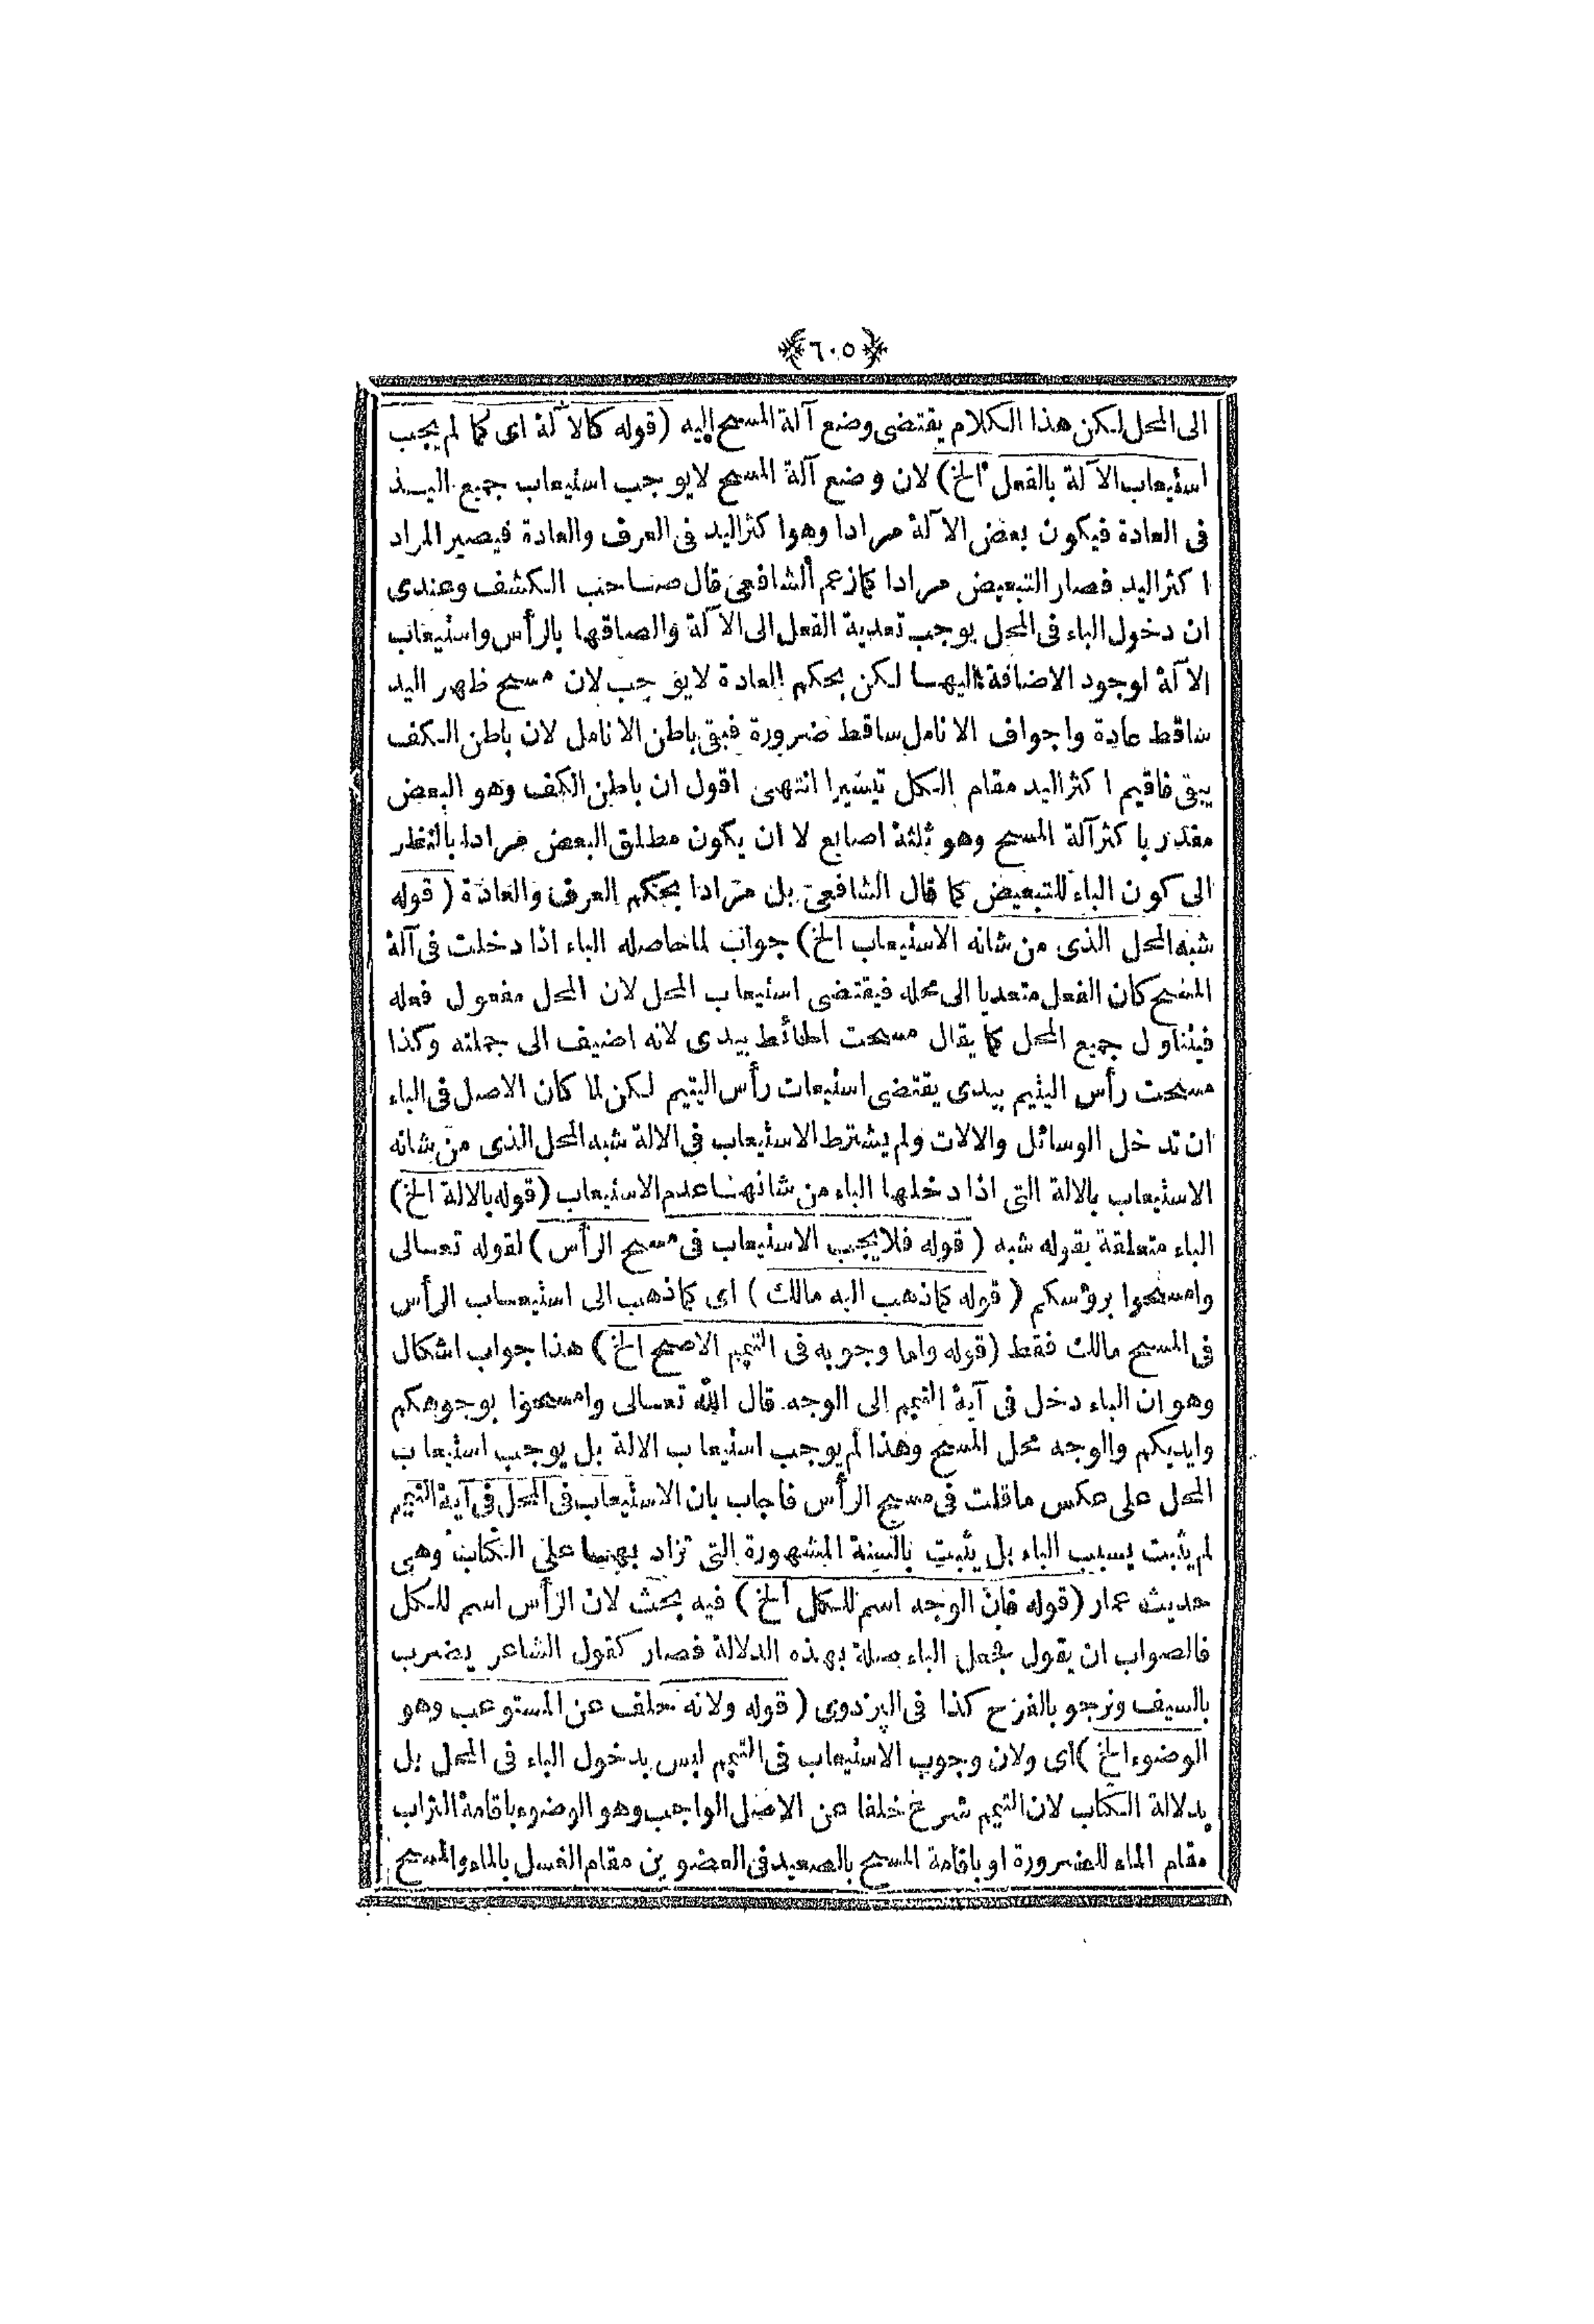 ﴿٦٠٥﴾
الى المحل لكن هذا الكلام يقتضى وضع آلة المسح اليه (قوله كالآلة اى كما لم يجب
استيعاب الآلة بالفعل الخ) لان وضع آلة المسح لا يوجب استيعاب جميع اليد
فى العادة فيكون بعض الآلة مرادا وهو اكثر اليد فى العرف والعادة فيصير المراد
اكثر اليد فصار التبعيض مرادا كما زعم الشافعى قال صاحب الكشف وعندى
ان دخول الباء فى المحل يوجب تعدية الفعل الى الآلة والصاقها بالرأس واستيعاب
الآلة لوجود الاضافة اليها لكن بحكم العادة لا يوجب لان مسح ظهر اليد
ساقط عادة واجواف الانامل ساقط ضرورة فبقى باطن الانامل لان باطن الكف
يبقى فاقيم اكثر اليد مقام الكل تيسيرا انتهى اقول ان باطن الكف وهو البعض
مقدر باكثر آلة المسح وهو ثلثة اصابع لا ان يكون مطلق البعض مرادا بالنظر
الى كون الباء للتبعيض كما قال الشافعى بل مرادا بحكم العرف والعادة (قوله
شبه المحل الذى من شانه الاستيعاب الخ) جواب لما حاصله الباء اذا دخلت فى آلة
المسح كان الفعل متعديا الى محله فيقتضى استيعاب المحل لان المحل مفعول فعله
فيتناول جميع المحل كما يقال مسحت الحائط بيدى لانه اضيف الى جملته وكذا
مسحت رأس اليتيم بيدى يقتضى استيعاب رأس اليتيم لكن لما كان الاصل فى الباء
ان تدخل الوسائل والالات ولم يشترط الاستيعاب فى الالة شبه المحل الذى من شانه
الاستيعاب بالالة التى اذا دخلها الباء من شانها عدم الاستيعاب (قوله بالالة الخ)
الباء متعلقة بقوله شبه (قوله فلا يجب الاستيعاب فى مسح الرأس) لقوله تعالى
وامسحوا برؤسكم (قوله كما ذهب اليه مالك) اى كما ذهب الى استيعاب الرأس
فى المسح مالك فقط (قوله واما وجوبه فى التيمم الاصح الخ) هذا جواب اشكال
وهو ان الباء دخل فى آية التيمم الى الوجه قال الله تعالى وامسحوا بوجوهكم
وايديكم والوجه محل المسح وهذا لم يوجب استيعاب الالة بل يوجب استيعاب
المحل على عكس ما قلت فى مسح الرأس فاجاب بان الاستيعاب فى المحل فى آية التيمم
لم يثبت بسبب الباء بل يثبت بالسنة المشهورة التى تزاد بها على الكتاب وهى
حديث عمار (قوله فان الوجه اسم للكل الخ) فيه بحث لان الرأس اسم للكل
فالصواب ان يقول بجعل الباء صلة بهذه الدلالة فصار كقول الشاعر يضرب
بالسيف ونرجو بالفرح كذا فى البزدوى (قوله ولانه خلف عن المستوعب وهو
الوضوء الخ) اى ولان وجوب الاستيعاب فى التيمم ليس بدخول الباء فى المحل بل
بدلالة الكتاب لان التيمم شرع خلفا عن الاصل الواجب وهو الوضوء باقامة التراب
مقام الماء للضرورة او باقامة المسح بالصعيد فى العضوين مقام الغسل بالماء والمسح